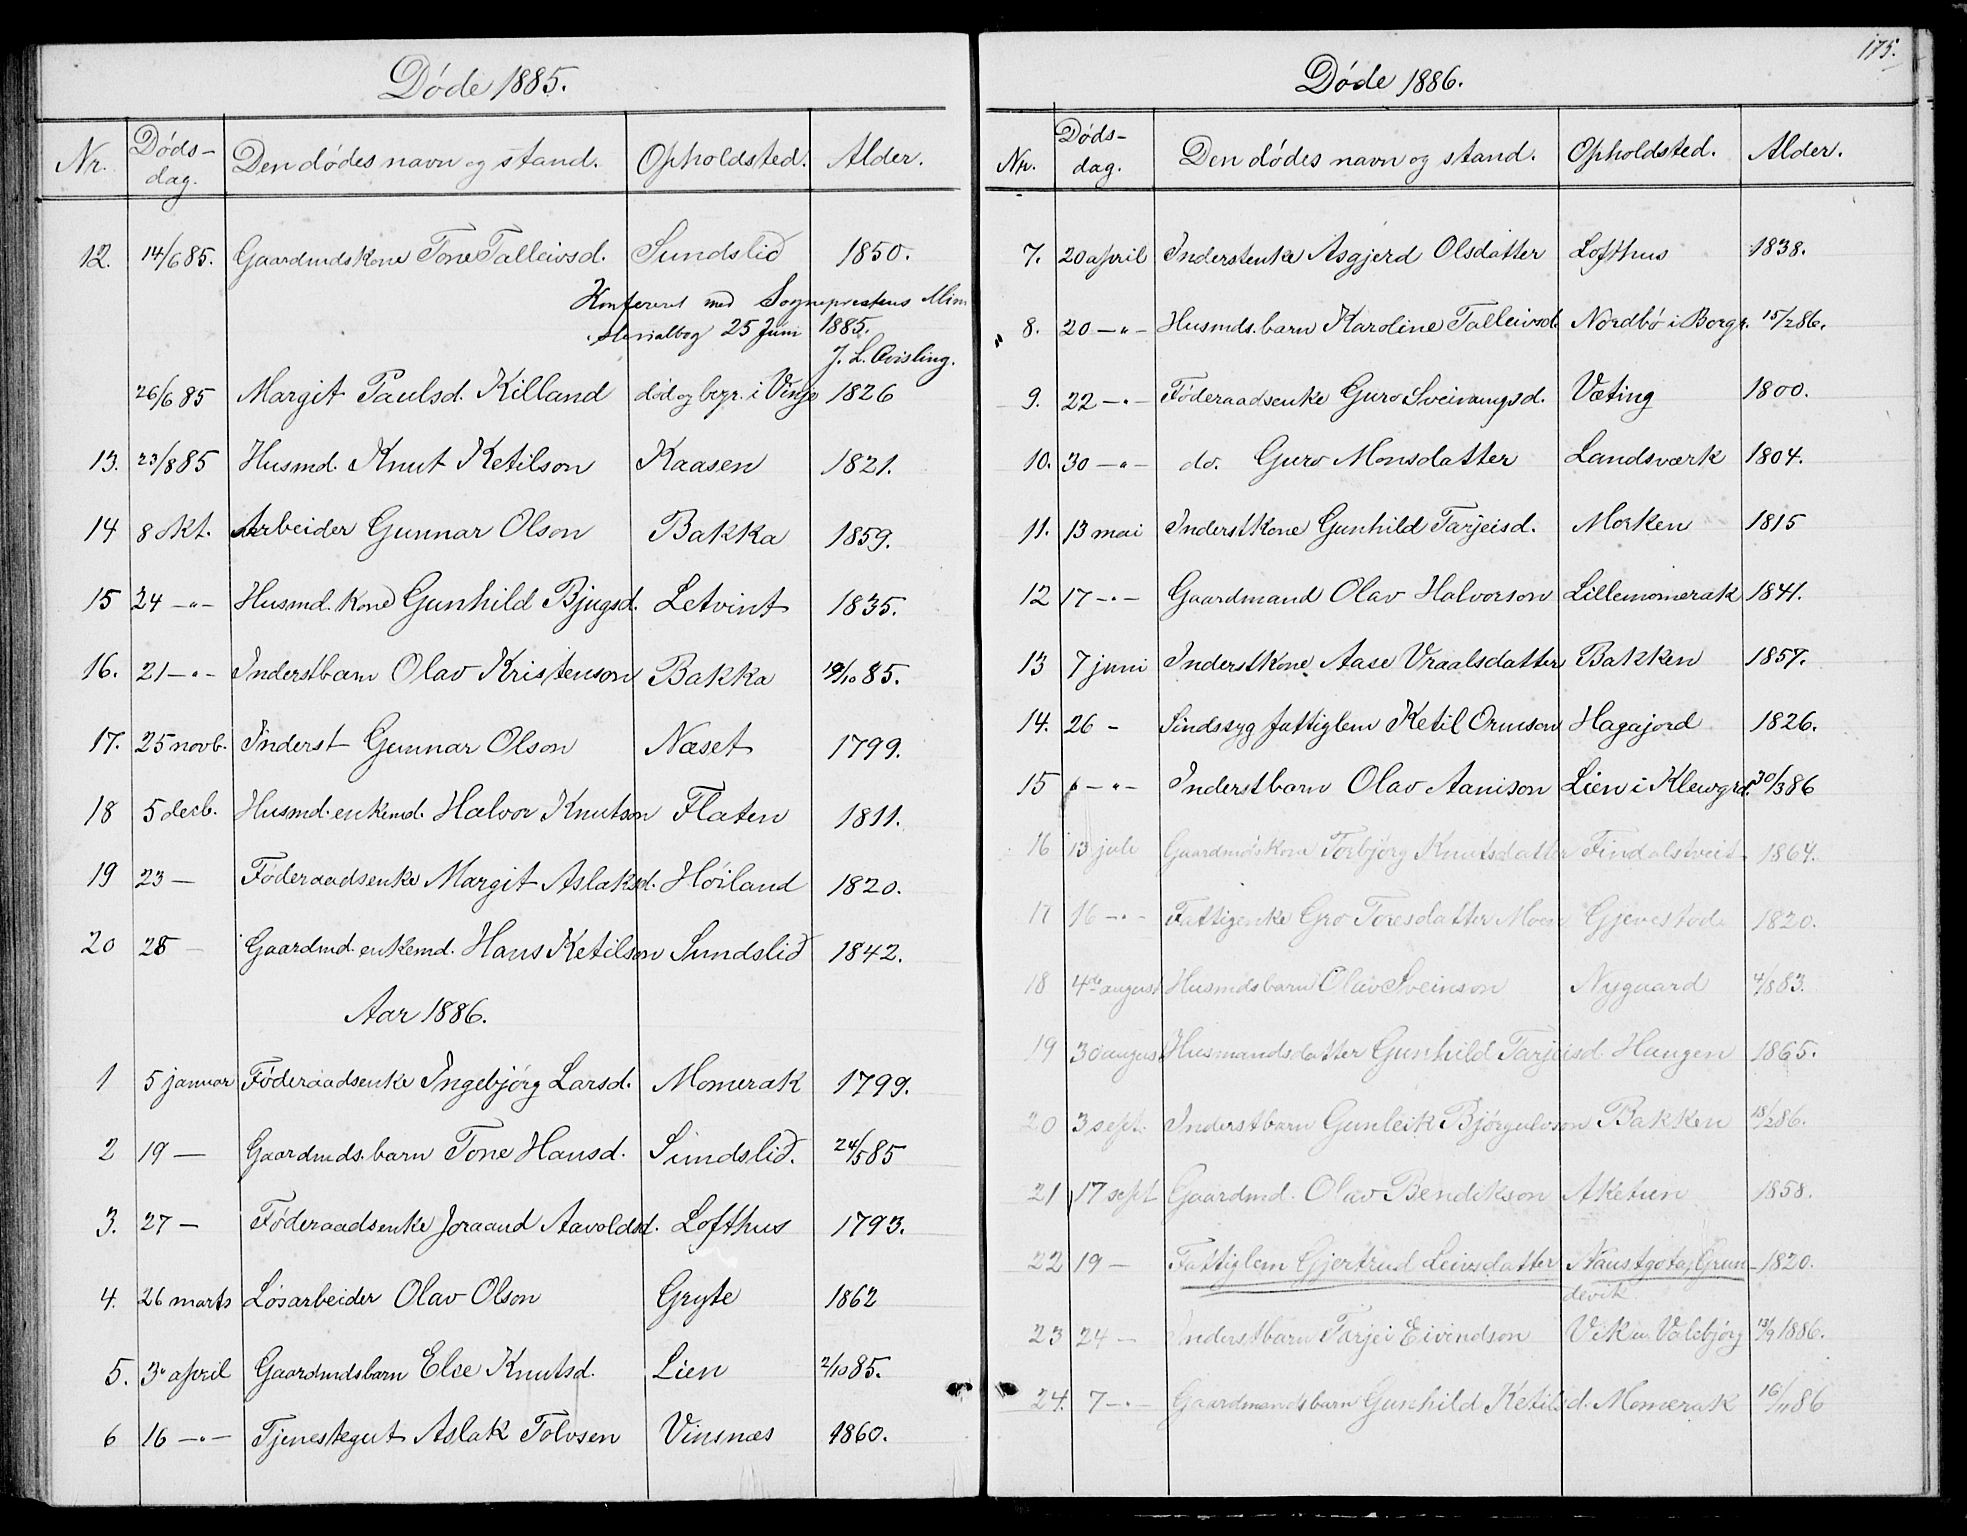 Døde 1885.
Nr. Døds-dag. Den dødes navn og stand. Opholdsted. Alder.
12. 14/6 85. Gaardmdskone Tone Talleivsd. Sundslid 1850.
Konfereret med Sogneprestens Mini
sterialbog 25 Juni 1885.
J. L. Qvisling.
26/6 85 Margit Paulsd. Killand død og begr. i Vinje 1826
13. 23/8 85 Husmd. Knut Ketilson Kaasen 1821.
14 8 okt. Arbeider Gunnar Olson Bakka 1859.
15 24 -"- Husmd. kone Gunhild Bjugsd. Letvint 1835.
16. 21 -"- Inderstbarn Olav Kristenson Bakka 19/10 85.
17. 25 novb. Inderst Gunnar Olson Næset 1799.
18 5 decb. Husmd. enkemd. Halvor Knutson Flaten 1811.
19 23 - Føderaadsenke Margit Aslaksd. Høiland 1820.
20 28 - Gaardmd. enkemd. Hans Ketilson Sundslid 1842.
Aar 1886.
1 5 januar Føderaadsenke Ingebjørg Larsd. Momerak 1799.
2 19 - Gaardmds. barn Tone Hansd. Sundslid. 24/5 85
3. 27 - Føderaadsenke Joraand Aavoldsd. Lofthus 1793.
4. 26 marts Løsarbeider Olav Olson Gryte 1862
5. 3 april Gaardmdsbarn Else Knutsd. Lien 2/10 85.
6 16 -"- Tjenestegut Aslak Tolvsen Vinsnæs 1860.
175.
Døde 1886.
Nr. Døds-dag. Den dødes navn og stand. Opholdsted. Alder.
7. 20 april Inderstenke Asgjerd Olsdatter Lofthus 1838.
8. 20 -"- Husmds. barn Karoline Talleivsd. Nordbø i Borgr. 15/2 86.
9. 22 -"- Føderaadsenke Guro Sveinungsd. Væting 1800.
10. 30 -"- do. Guro Monsdatter Landsværk 1804.
11. 13 mai Inderstkone Gunhild Tarjeisd. Morken 1815
12 17 -"- Gaardmand Olav Halvorson Lillemomerak 1841.
13 7 juni Inderstkone Aase Vraalsdatter Bakken 1857.
14. 26 - Sindssyg fattiglem Ketil Ormson Hagajord 1826.
15 " -"- Inderstbarn Olav Aanison Lien i Klevgrd. 30/3 86
16 13 juli Gaardmdskone Torbjørg Knutsdatter Findalstveit 1864.
17 16 -"- Fattigenke Gro Toresdatter Moen Gjevestod 1820.
18 4de august Husmdsbarn Olav Sveinson Nygaard 4/8 83.
19 30 august Husmandsdatter Gunhild Tarjeisd. Haugen 1865.
20 3 sept. Inderstbarn Gunleik Bjørgulvson Bakken 18/2 86.
21 17 sept Gaardmd. Olav Bendikson Aketun 1858.
22 19 - Fattiglem Gjertrud Leivsdatter Grun- 1820.
devik
23 24 - Inderstbarn Tarjei Eivindson Vik u. Valebjørg 13/9 1886.
24. 7 -"- Gaardmandsbarn Gunhild Ketilsd. Momerak 16/11 86